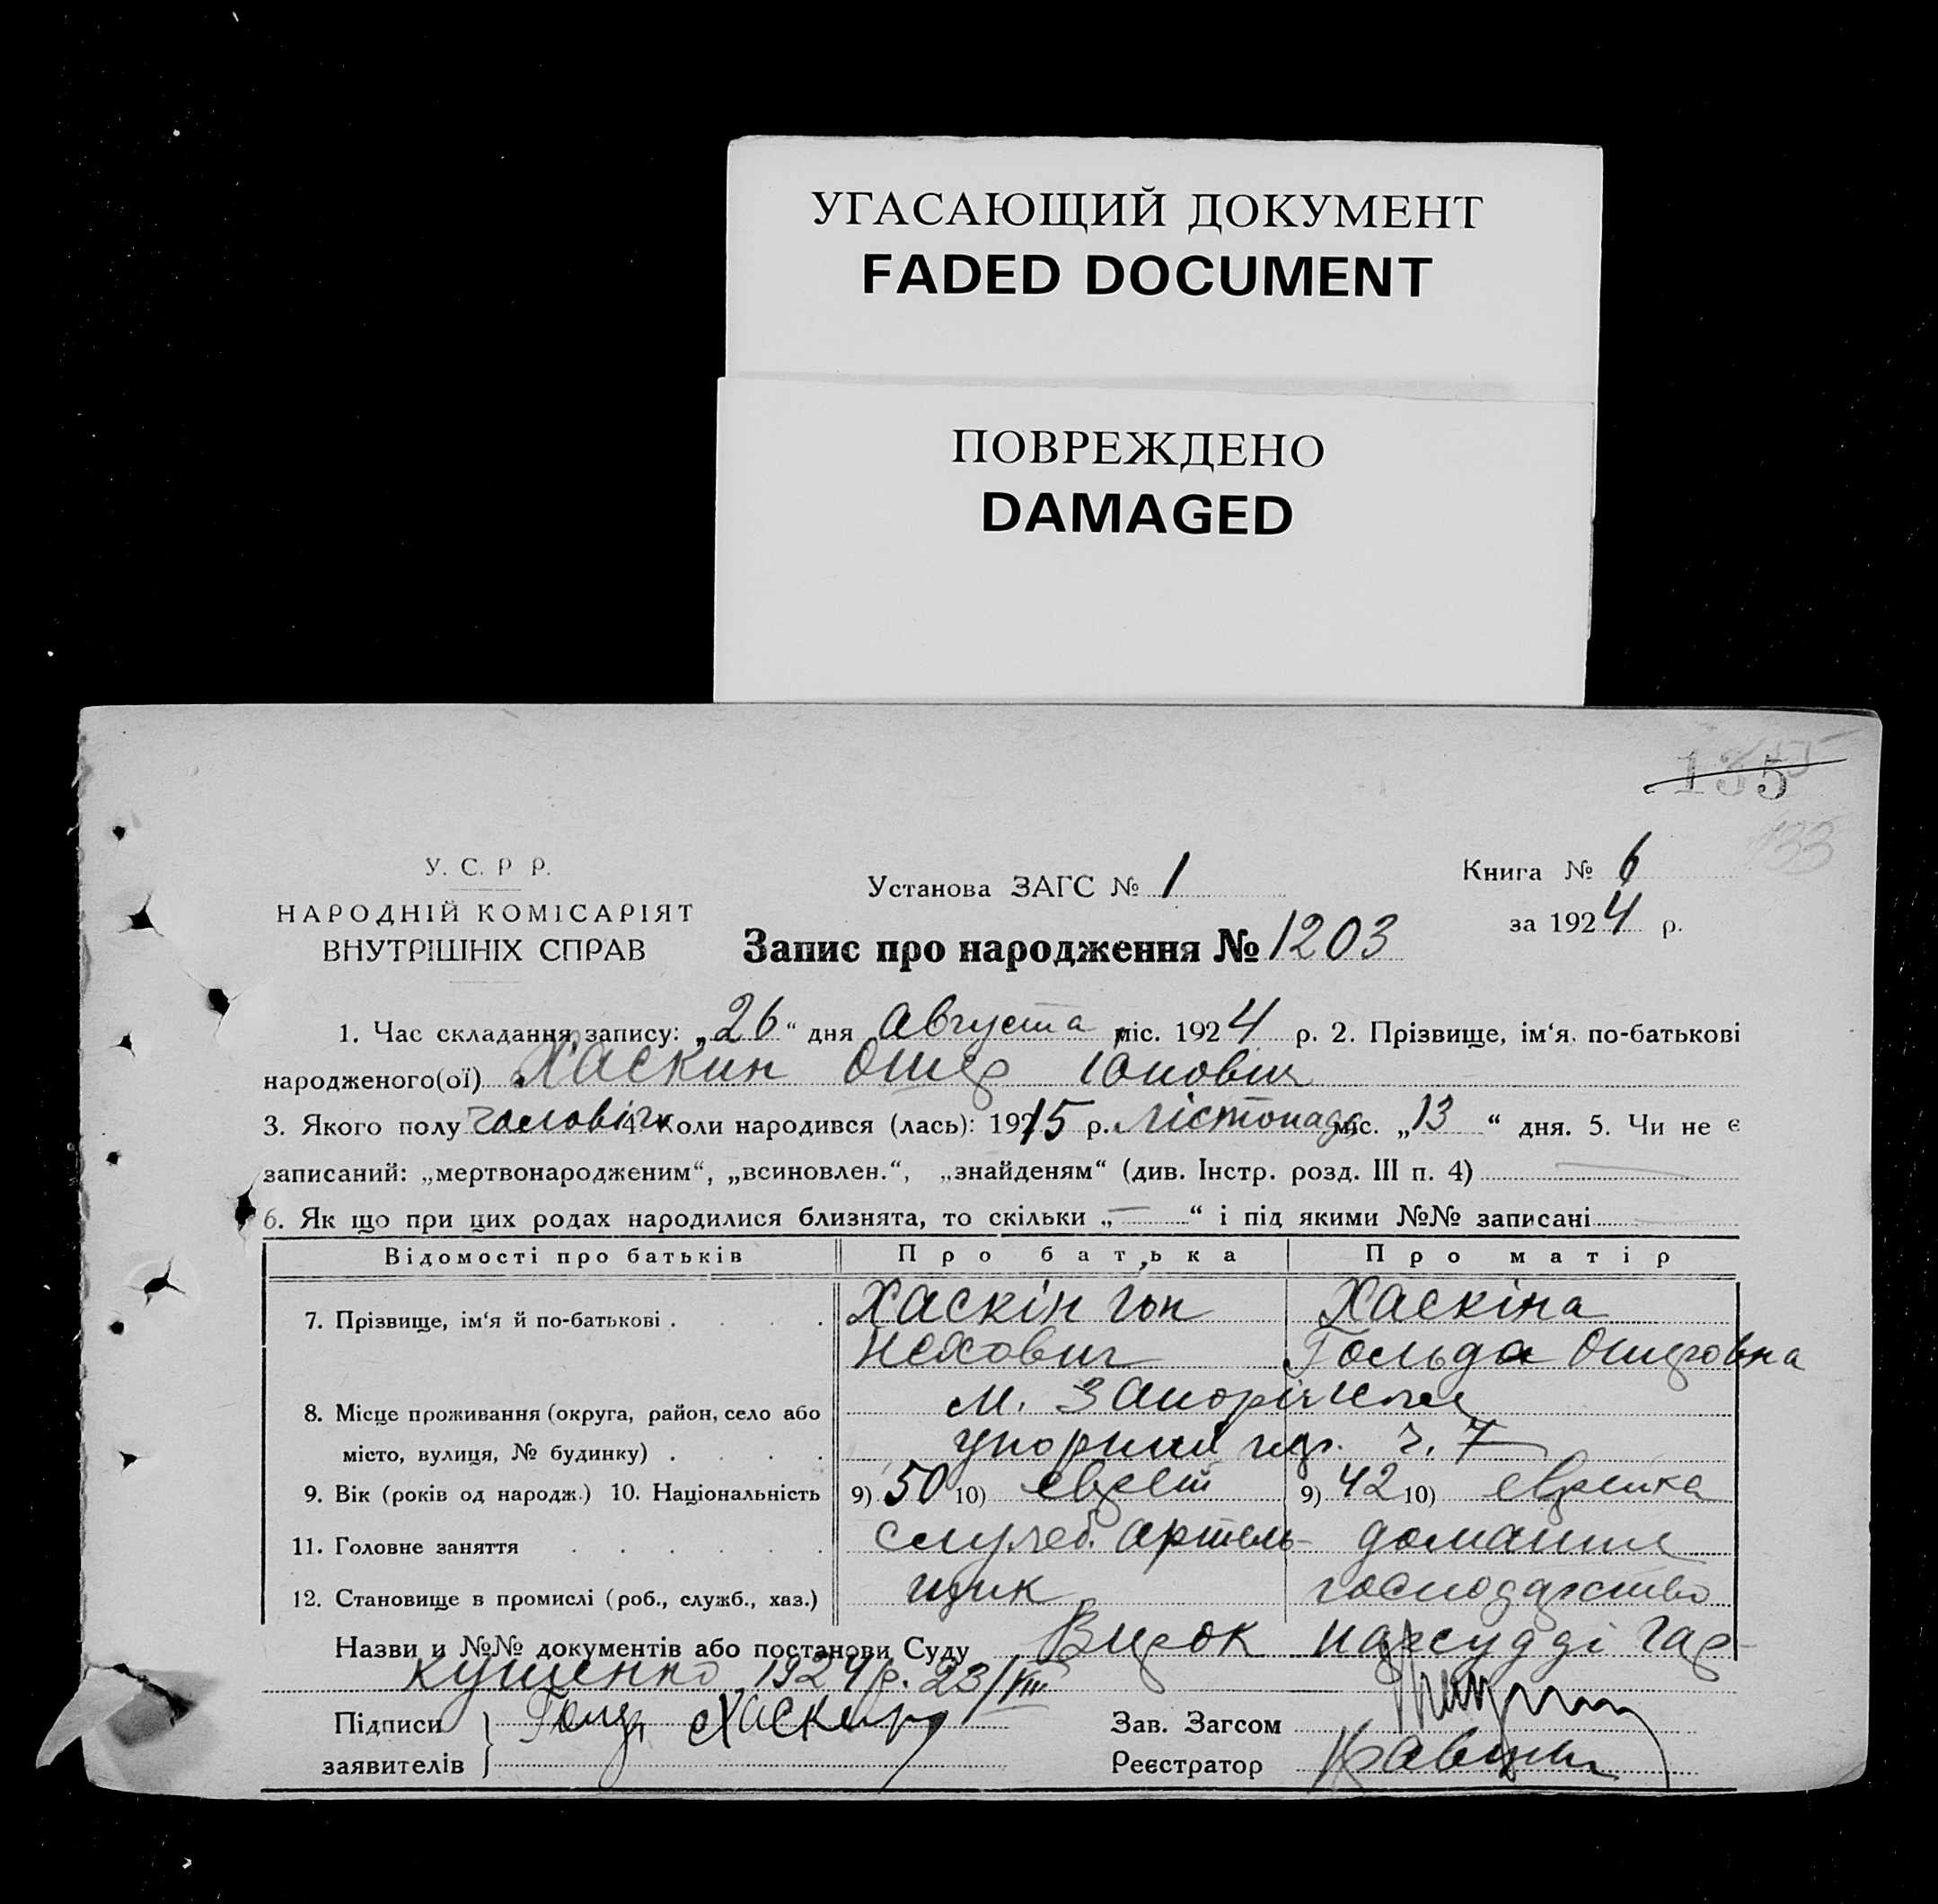 УГАСАЮЩИЙ ДОКУМЕНТ
FADED DOCUMENT
ПОВРЕЖДЕНО
DAMAGED
135
133
У. С. Р Р.
Установа ЗАГС № 1
Книга № 6
НАРОДНІЙ КОМІСАРІЯТ
ВНУТРІШНІХ СПРАВ
за 1924 р.
Запис про народження № 1203
1. Час складання запису: „26“ дня Августа міс. 1924 р. 2. Прізвище, ім‘я. по-батькові
народженого(ої) Хаскин Ошер
3. Якого полу чоловіч 4. Коли народився (лась): 1915 р. лістопада міс. „13“ дня. 5. Чи не є
записаний: „мертвонародженим“, „всиновлен.“, „знайденям“ (див. Інстр. розд. III п. 4)
6. Як що при цих родах народилися близнята, то скільки „—“ і під якими №№ записані
Відомості про батьків Про батька Про матір
7. Прізвище, ім‘я й по-батькові . . . . Хаскін Хаскіна
Нехович Гольда Ошеровна
8. Місце проживання (округа, район, село або м. Запоріжже
місто, вулиця, № будинку) . . . . ч. 7
9. Вік (років од народж.) 10. Національність 9) 50 10) еврей 9) 42 10) еврейка
11. Головне заняття . . . . . . служб. артель- домашне
12. Становище в промислі (роб., служб., хаз.) щик господарство
Назви и №№ документів або постанови Суду Вирок нарсудді Гар-
кушенко 1924 р. 23/VIII
Підписи Хаскин Зав. Загсом
заявителів Реєстратор